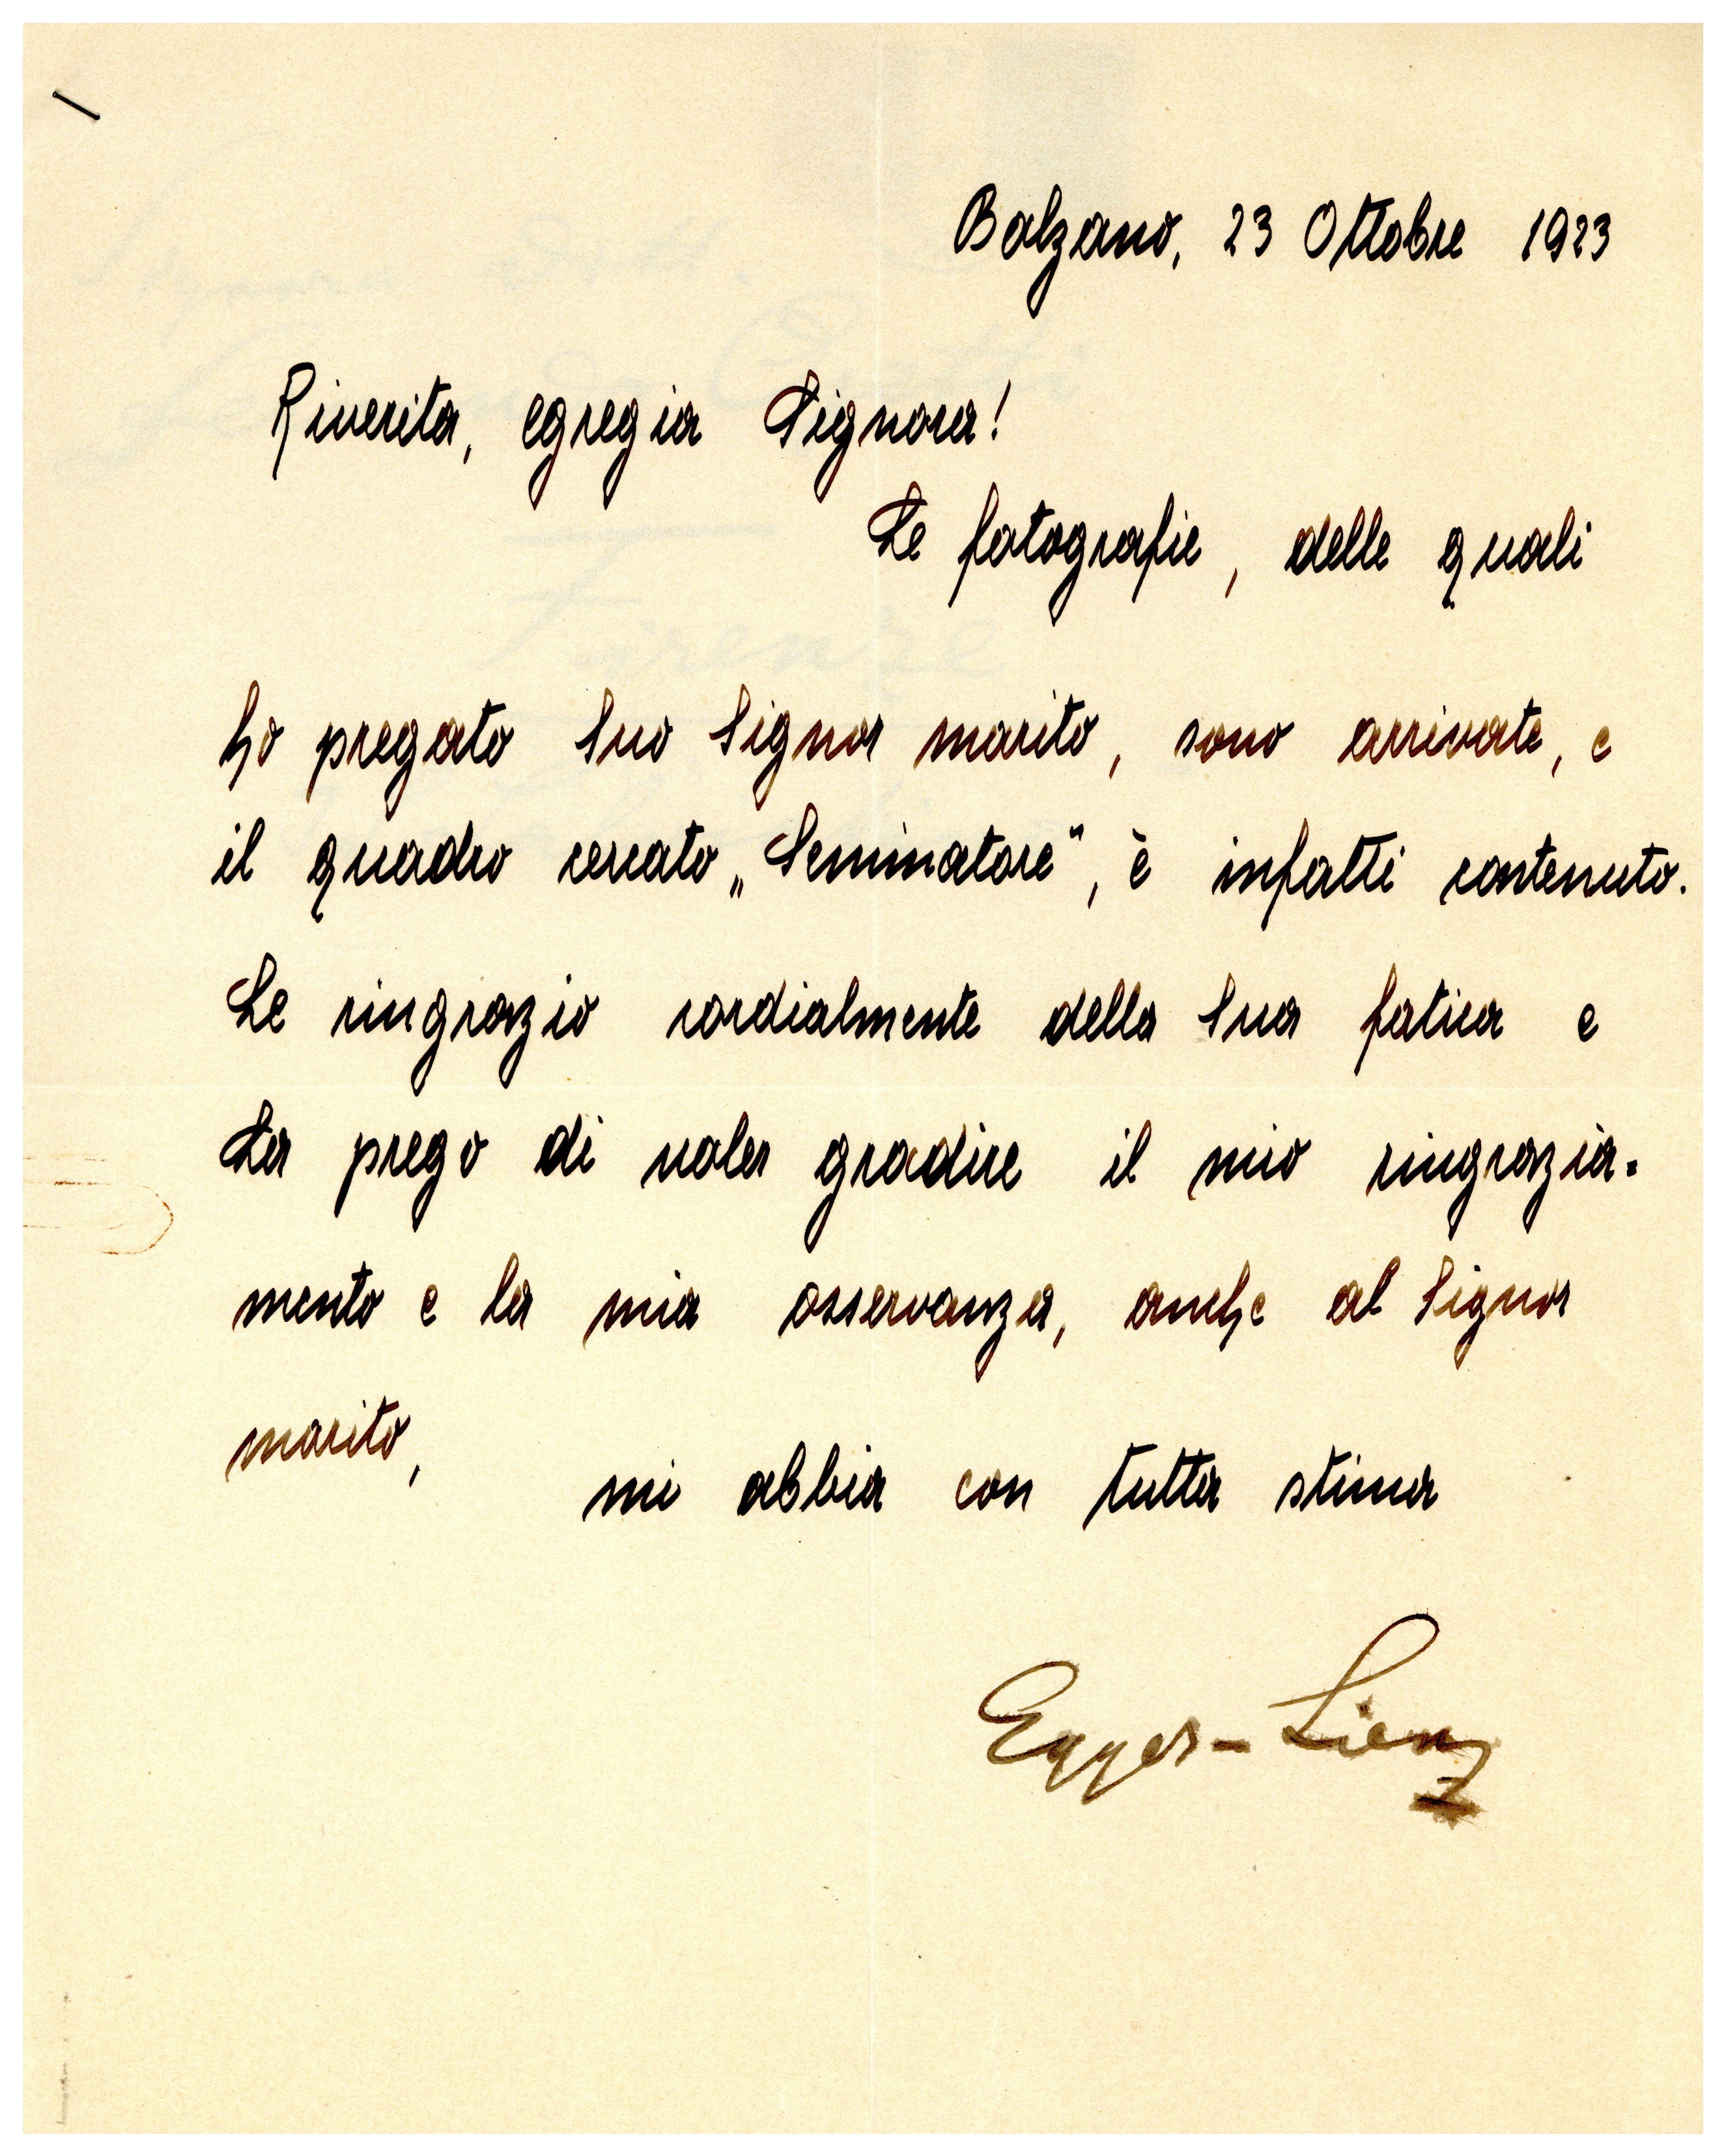 Bolzano, 23 Ottobre 1923
Riverita, egregia Signora!
Le fotografie, delle quali
ho pregato Suo Signor marito, sono arrivate, e
il quadro cercato „Seminatore“, è infatti contenuto.
Le ringrazio cordialmente della Sua fatica e
La prego di voler gradire il mio ringrazia=
mento e la mia osservanza, anche al Signor
marito,
mi abbia con tutta stima
Egger-Lienz
Firenze